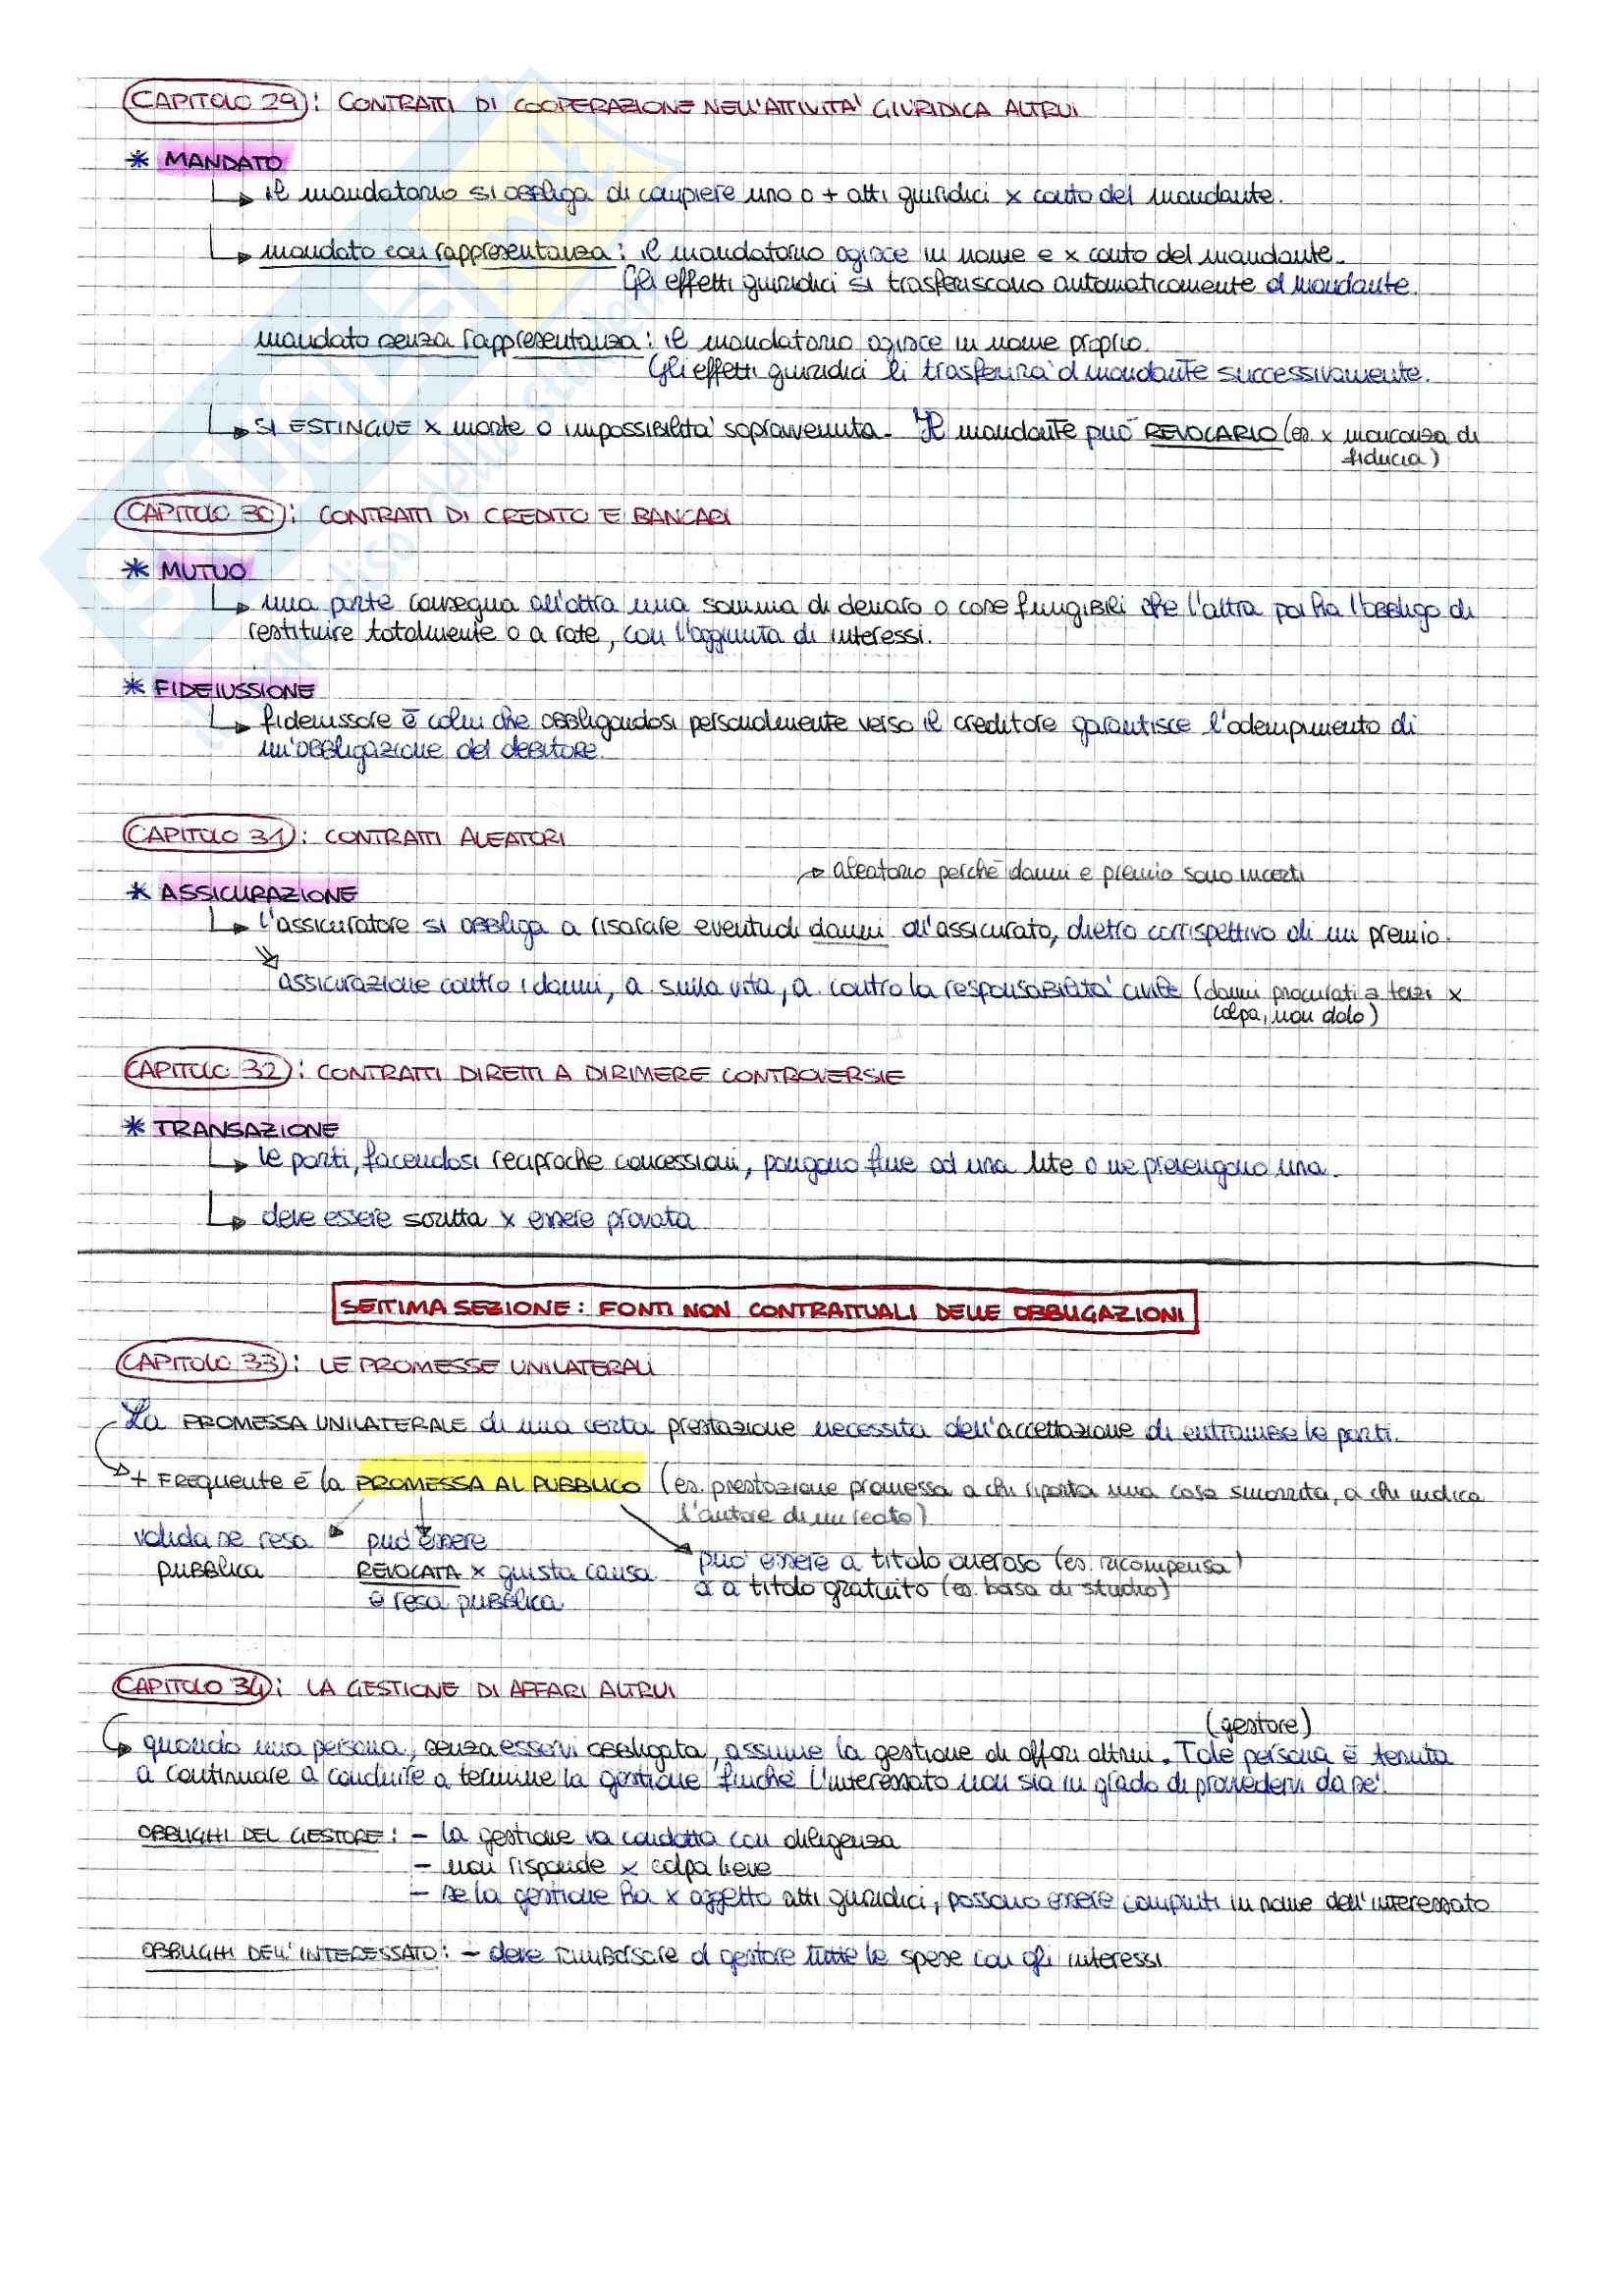 CAPITOLO 29: CONTRATTI DI COOPERAZIONE NELL'ATTIVITA' GIURIDICA ALTRUI
* MANDATO
il mandatario si obbliga di compiere uno o + atti giuridici x conto del mandante.
mandato con rappresentanza: il mandatario agisce in nome e x conto del mandante.
Gli effetti giuridici si trasferiscono automaticamente al mandante.
mandato senza rappresentanza: il mandatario agisce in nome proprio.
Gli effetti giuridici li trasferirà al mandante successivamente.
SI ESTINGUE x morte o impossibilità sopravvenuta. Il mandante può REVOCARLO (es. x mancanza di
fiducia)
CAPITOLO 30: CONTRATTI DI CREDITO E BANCARI
* MUTUO
una parte consegna all'altra una somma di denaro o cose fungibili che l'altra poi ha l'obbligo di
restituire totalmente o a rate, con l'aggiunta di interessi.
* FIDEIUSSIONE
fideiussore è colui che obbligandosi personalmente verso il creditore garantisce l'adempimento di
un'obbligazione del debitore.
CAPITOLO 31: CONTRATTI ALEATORI
aleatorio perchè danni e premio sono incerti
* ASSICURAZIONE
l'assicuratore si obbliga a risarcire eventuali danni all'assicurato, dietro corrispettivo di un premio.
assicurazione contro i danni, a. sulla vita, a. contro la responsabilità civile (danni procurati a terzi x
colpa, non dolo)
CAPITOLO 32: CONTRATTI DIRETTI A DIRIMERE CONTROVERSIE
* TRANSAZIONE
le parti, facendosi reciproche concessioni, pongono fine ad una lite o ne prevengono una.
deve essere scritta x essere provata
SETTIMA SEZIONE: FONTI NON CONTRATTUALI DELLE OBBLIGAZIONI
CAPITOLO 33: LE PROMESSE UNILATERALI
La PROMESSA UNILATERALE di una certa prestazione necessita dell'accettazione di entrambe le parti.
+ FREQUENTE è la PROMESSA AL PUBBLICO (es. prestazione promessa a chi riporta una cosa smarrita, a chi indica
l'autore di un reato)
valida se resa
pubblica
può essere
REVOCATA x giusta causa
e resa pubblica
può essere a titolo oneroso (es. ricompensa)
o a titolo gratuito (es. borsa di studio)
CAPITOLO 34: LA GESTIONE DI AFFARI ALTRUI
(gestore)
quando una persona, senza esservi obbligata, assume la gestione di affari altrui. Tale persona è tenuta
a continuare a condurre a termine la gestione finchè l'interessato non sia in grado di provvedervi da sè.
OBBLIGHI DEL GESTORE: - la gestione va condotta con diligenza
- non risponde x colpa lieve
- se la gestione ha x oggetto atti giuridici, possono essere compiuti in nome dell'interessato
OBBLIGHI DELL'INTERESSATO: - deve rimborsare al gestore tutte le spese con gli interessi